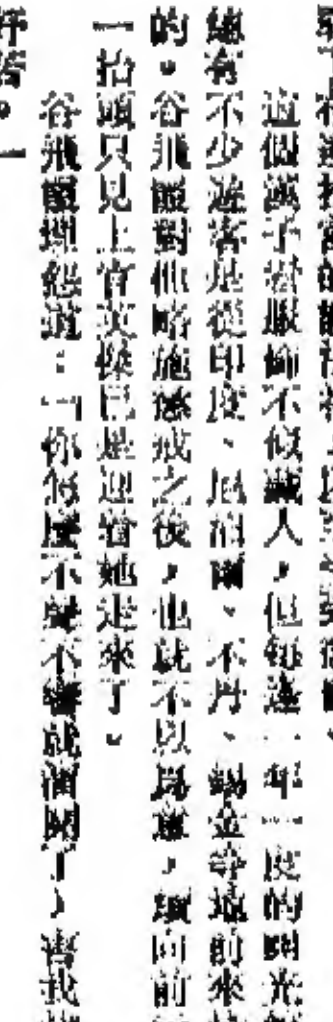 這個漢子看服飾不似藏人，但每逢一年一度的開光
總有不少遊客是從印度、尼泊爾、不丹、錫金等地前來
的。谷飛霞對他略施懲戒之後，也就不以爲意，頭向前
一抬頭只見上官英傑已是迎着她走來了。
谷飛霞埋怨道：「你怎麼不聲不響就溜開了，害我